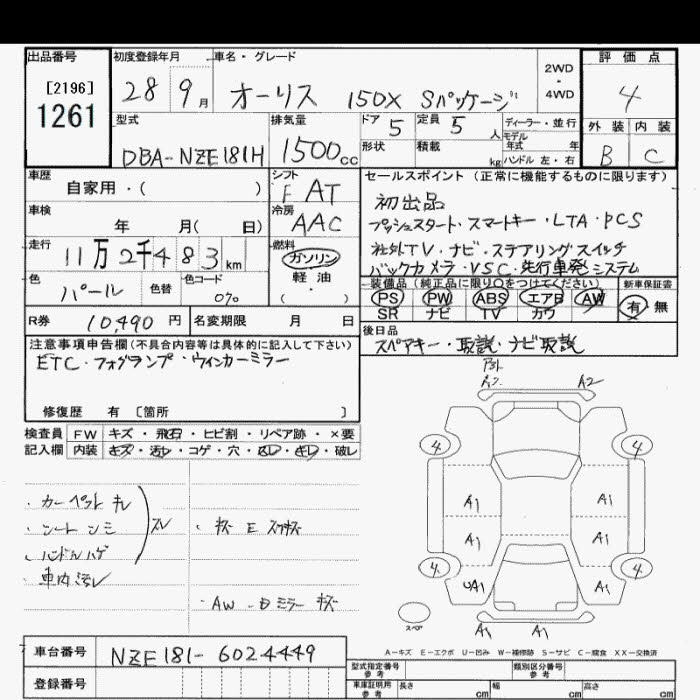 出品番号 初度登録年月 車名・グレード 2WD・4WD 評価点
[2196]
1261
28 9月 オーリス 150X Sパッケージ 4
型式 排気量 ドア 5 定員 5人 ディーラー・並行 外装 内装
DBA-NZE181H 1500cc 形状 積載 kg モデル年式 年 ハンドル 左・右 B C
車歴 シフト セールスポイント(正常に機能するものに限ります)
自家用・( ) F AT 初出品
車検 冷房 プッシュスタート・スマートキー・LTA・PCS
年 月( 日) AAC
走行 燃料 社外TV・ナビ・ステアリングスイッチ
11万2千483km ガソリン バックカメラ・VSC・先行車発システム
色 色替 色コード 軽油 装備品(純正品に限り○をつけてください) 新車保証書
パール 070 ・( ) PS PW ABS エアB AW 有・無
SR ナビ TV カワ
R券 10,490円 名変期限 月 日 後日品
注意事項申告欄(不具合内容等は具体的に記入して下さい) スペアキー・取説・ナビ取説
ETC・フォグランプ・ウインカーミラー
A2
修復歴 有 [箇所 ]
検査員 FW キズ・飛石・ヒビ割・リペア跡・×要
記入欄 内装 キズ・汚レ・コゲ・穴・凹レ・キレ・破レ
4 4
A1 A1
・カーペット キレ
・シート シミ スレ ・キズ E スリキズ
・ハンドルハゲ
A1 A1
・車内汚レ
4 4
UA1 A1
・AW・Dミラー キズ
スペア A1 A1
A-キズ E-エクボ U-凹み W-補修跡 S-サビ C-腐食 XX-交換済
車台番号 NZE181-6024449
型式指定番号 参考 類別区分番号 参考
登録番号
車庫証明用 参考 長さ cm 幅 cm 高さ cm